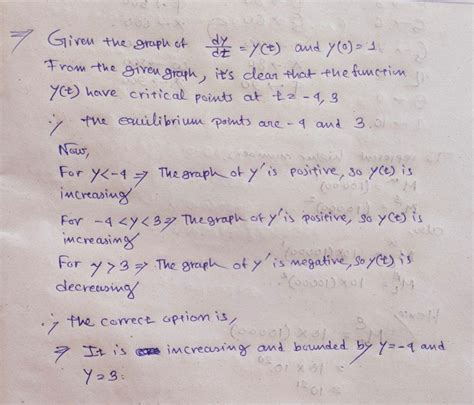 ⇒ Given the graph of dy/dt = y(t) and y(0) = 1
From the given graph, it's clear that the function
y(t) have critical points at t = -4, 3
∴ the equilibrium points are -4 and 3.
Now,
For y<-4 ⇒ The graph of y' is positive, so y(t) is
increasing
For -4<y<3 ⇒ The graph of y' is positive, so y(t) is
increasing
For y>3 ⇒ The graph of y' is negative, so y(t) is
decreasing
∴ the correct option is,
⇒ It is increasing and bounded by y=-4 and
y=3.